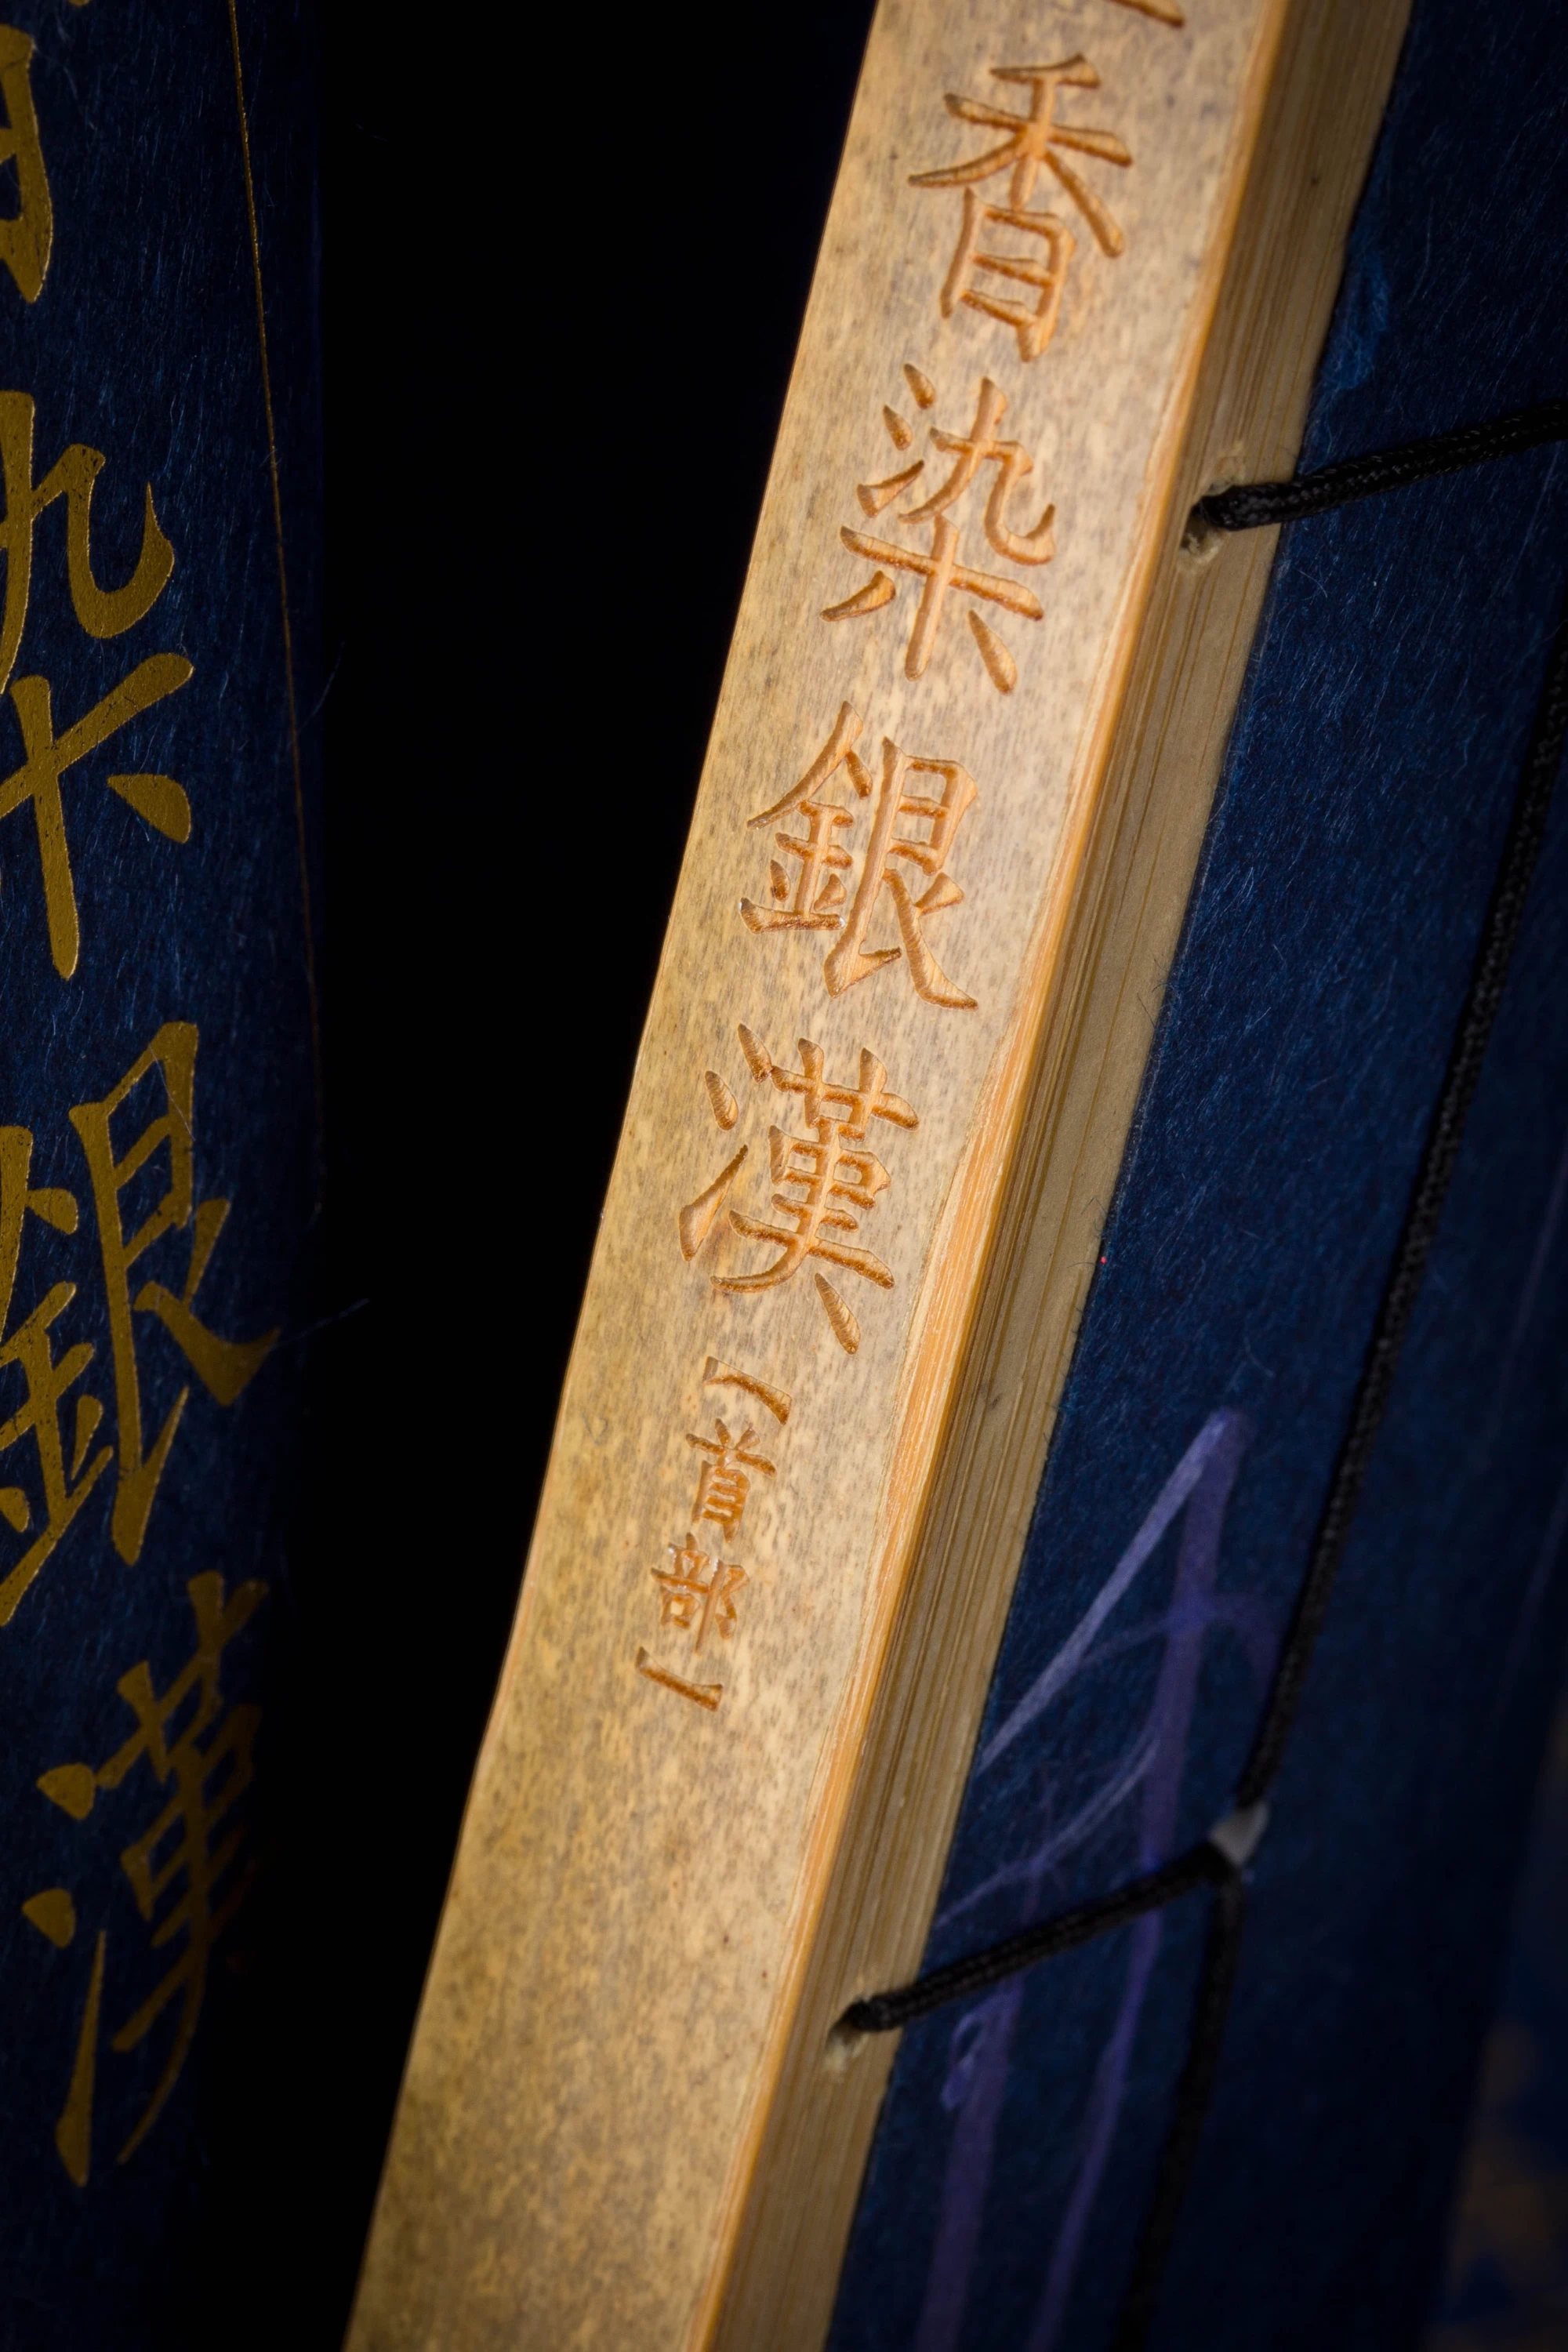 香染銀漢【首部】
染銀漢